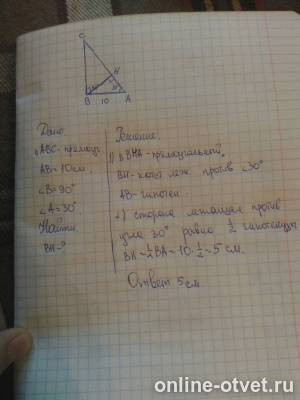 C
H
B 10 A
Дано:
ABC - прямоуг.
AB = 10 см
∠B = 90°
∠A = 30°
Найти:
BH - ?
Решение:
1) ΔBHA - прямоугольный,
BH - катет леж. против ∠30°
AB - гипотен.
2) сторона лежащая против
угла 30° равна 1/2 гипотенузы
BH = 1/2 BA = 10 · 1/2 = 5 см.
Ответ 5 см
online-otvet.ru